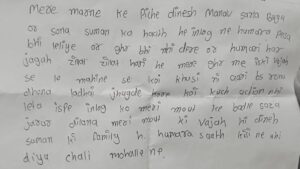 Mere marne ke Piche dinesh Manav saria Baga
or sona suman ka hath he inlog ne humara pesa
bhi leliye or ghr bhi ni dere or humari har
jagah he mere ghr me iski vajah
se 10 mahine se koi khusi ni aari bs rona
dhona ladhai jhagde koi kuch action nhi
leta ispe inlog ko meri mout ke badle saza
jarur dilana meri mout ki vajah hi dinesh
suman ki family h humara saath kisi ne nhi
diya chali mohalle ne.